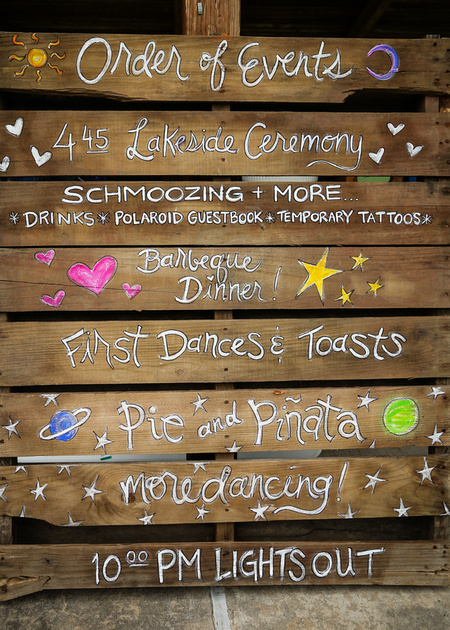 Order of Events
4 45 Lakeside Ceremony
SCHMOOZING + MORE...
*DRINKS* POLAROID GUESTBOOK * TEMPORARY TATTOOS*
Barbeque
Dinner!
First Dances & Toasts
Pie and Piñata
more dancing!
10 00 PM LIGHTS OUT